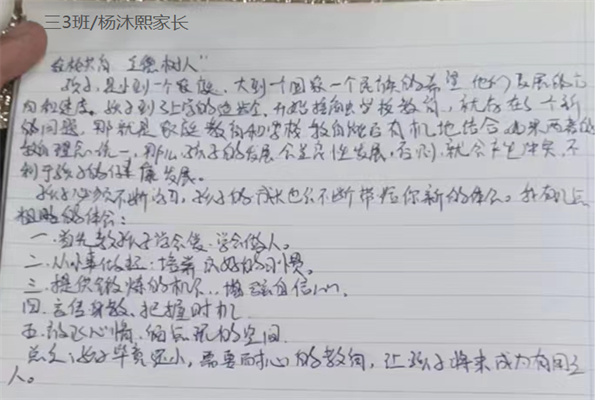 三3班/杨沐熙家长
家校共育 立德树人”
孩子,是小到一个家庭,大到一个国家一个民族的希望,他们发展的方
向和速度。孩子到了上学的年龄,开始接触学校教育,就存在了一个新
的问题,那就是家庭教育和学校教育能否有机地结合。如果两者的
教育理念统一,那么孩子的发展会是良性发展,否则,就会产生冲突,不
利于孩子的健康发展。
孩子必须不断学习,孩子的成长也会不断带给你新的体会。我有几点
粗略的体会:
一.首先教孩子学会爱,学会做人。
二.从小事做起,培养良好的习惯。
三.提供锻炼的机会,增强自信心。
四.言传身教,把握时机
五.放飞心情,留点玩的空间
总之,孩子毕竟还小,需要耐心的教育,让孩子将来成为有用之
人。